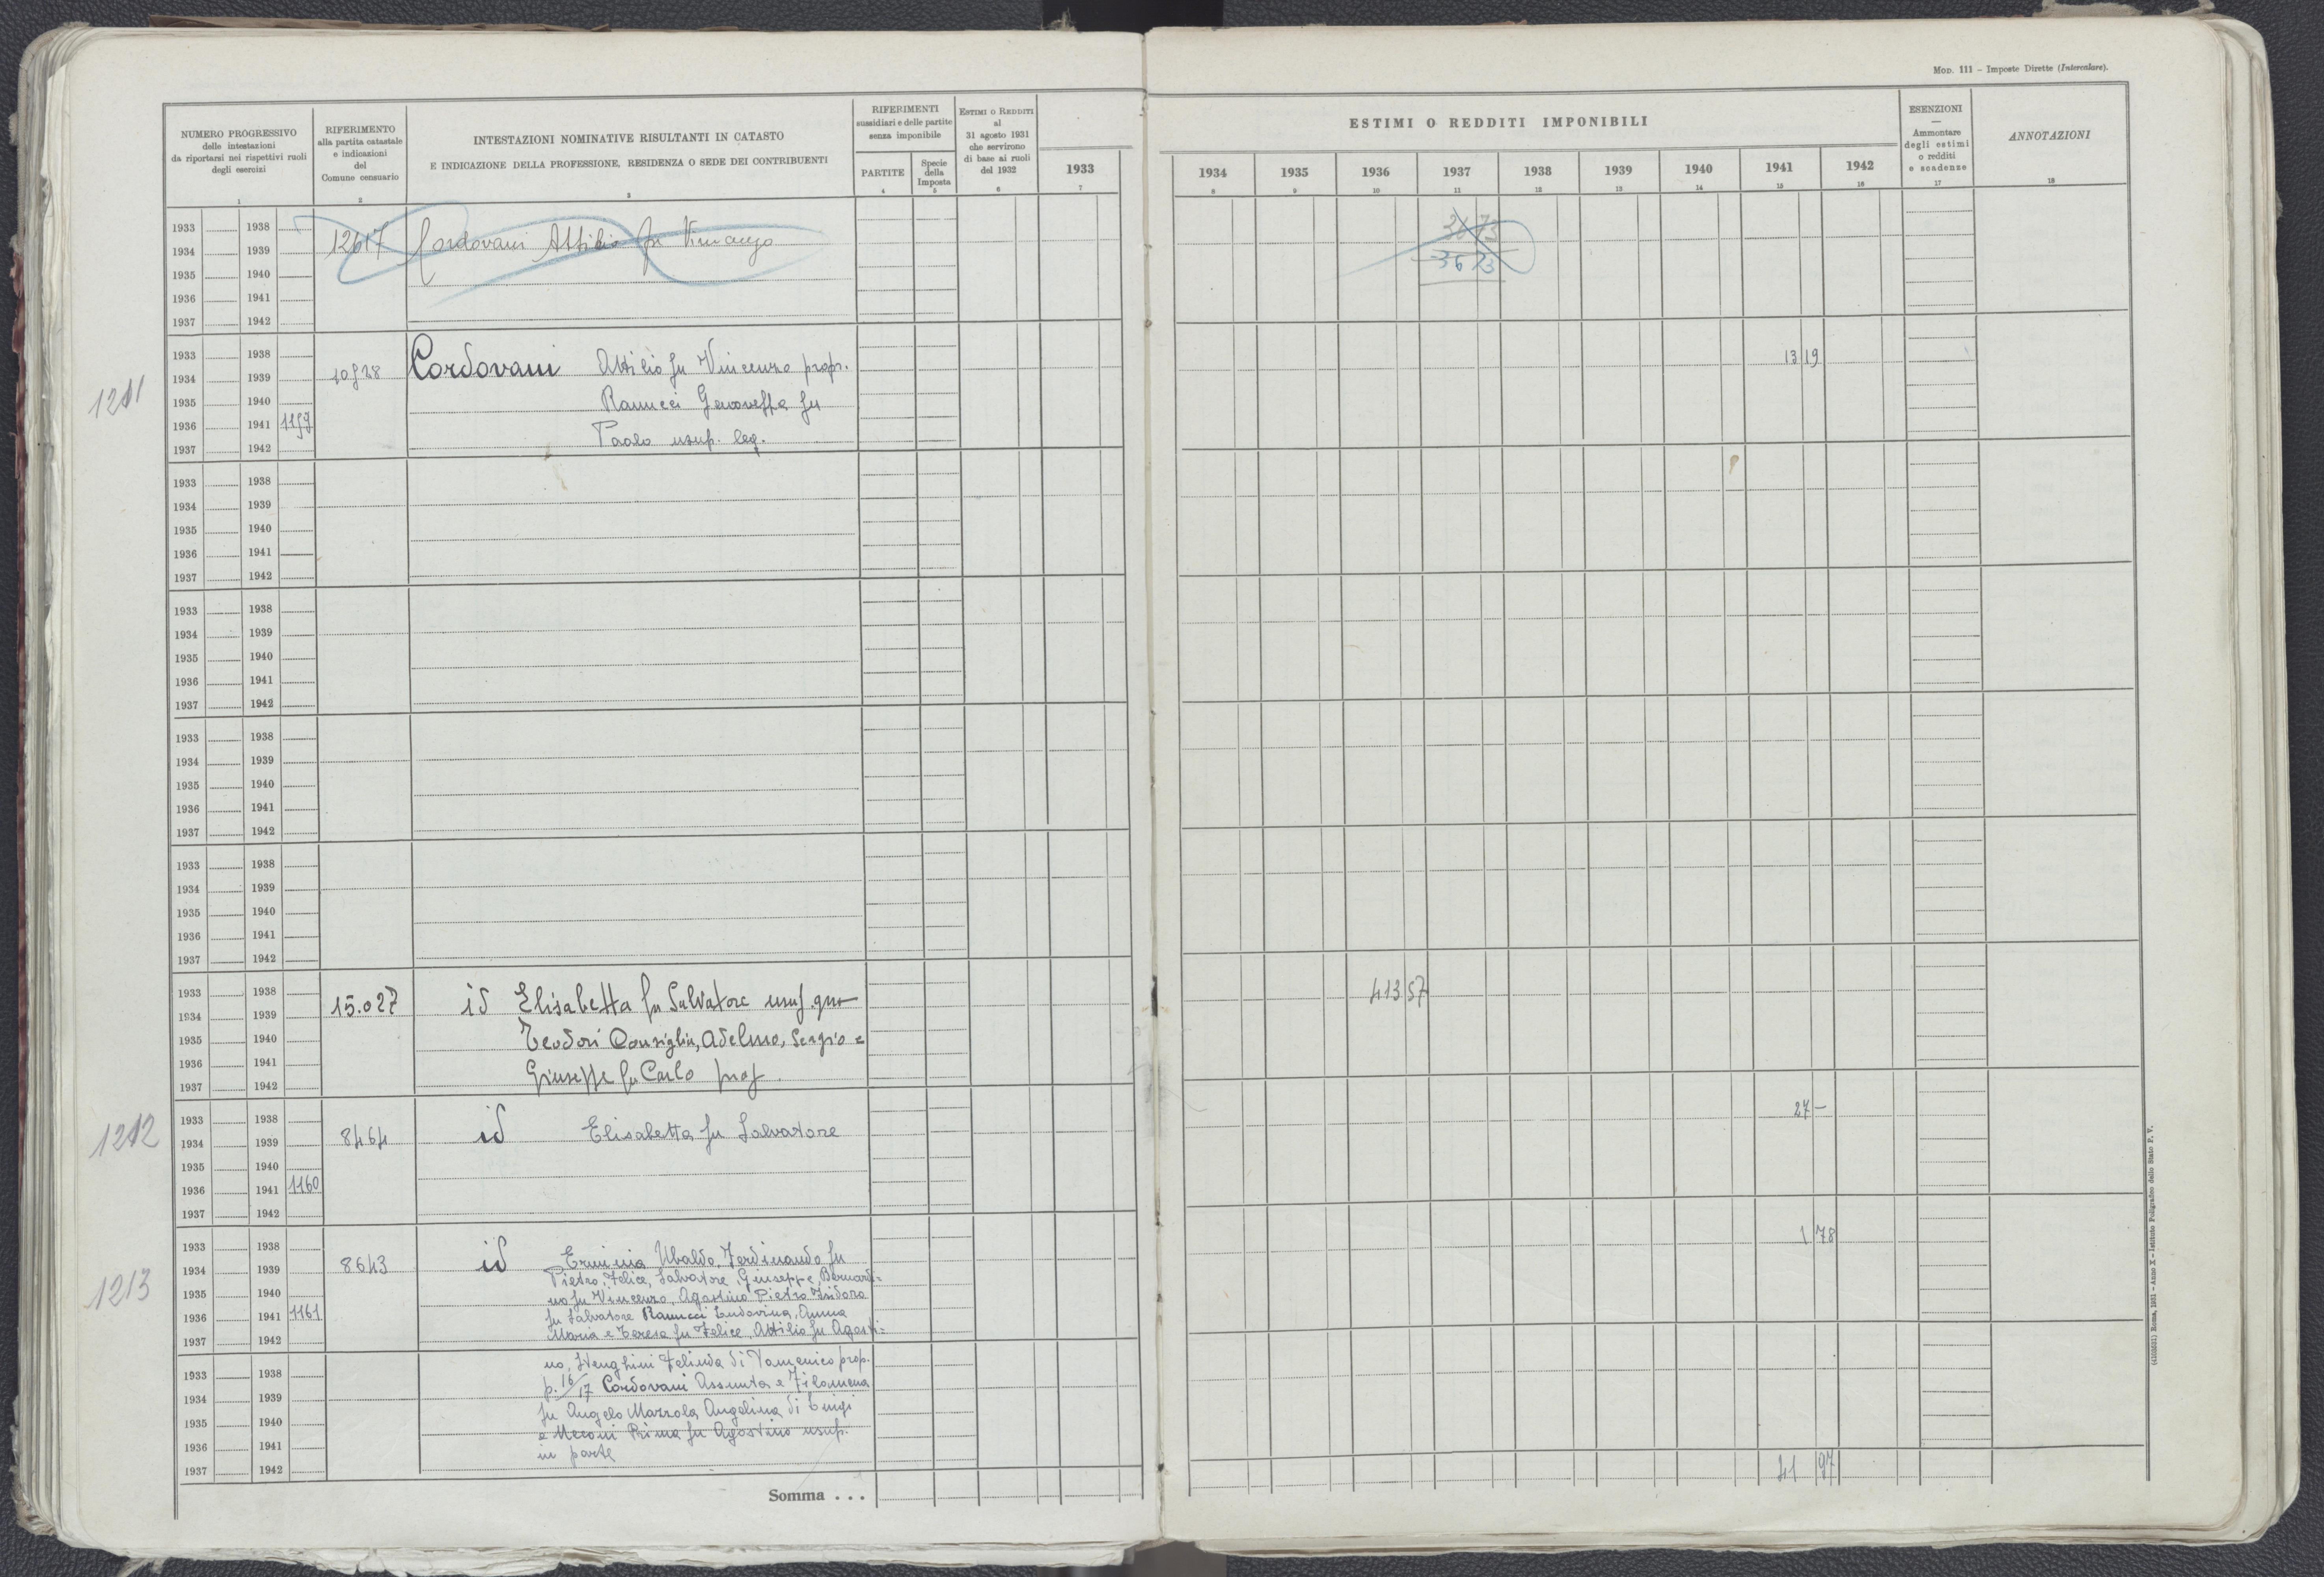 Mod. 111 - Imposte Dirette (Intercalare).
NUMERO PROGRESSIVO delle intestazioni da riportarsi nei rispettivi ruoli degli esercizi
RIFERIMENTO alla partita catastale e indicazioni del Comune censuario
INTESTAZIONI NOMINATIVE RISULTANTI IN CATASTO
E INDICAZIONE DELLA PROFESSIONE, RESIDENZA O SEDE DEI CONTRIBUENTI
RIFERIMENTI sussidiari e delle partite senza imponibile
PARTITE
Specie della Imposta
Estimi o Redditi al 31 agosto 1931 che servirono di base ai ruoli del 1932
ESTIMI O REDDITI IMPONIBILI
1933 1934 1935 1936 1937 1938 1939 1940 1941 1942
ESENZIONI — Ammontare degli estimi o redditi e scadenze
ANNOTAZIONI
1 2 3 4 5 6 7 8 9 10 11 12 13 14 15 16 17 18
1933 1938
1934 1939 12617 Cordovani Attilio fu Vincenzo
1935 1940 3673
1936 1941
1937 1942
1933 1938 13 19
1934 1939 10928 Cordovani Attilio fu Vincenzo propr.
1935 1940 Ranucci Genoveffa fu
1936 1941 1159
1937 1942 Paolo usuf. leg.
1211
1933 1938
1934 1939
1935 1940
1936 1941
1937 1942
1933 1938
1934 1939
1935 1940
1936 1941
1937 1942
1933 1938
1934 1939
1935 1940
1936 1941
1937 1942
1933 1938
1934 1939
1935 1940
1936 1941
1937 1942
1933 1938 413 57
1934 1939 15.027 id Elisabetta fu Salvatore usuf.
1935 1940 Teodori Consiglia, Adelmo, Sergio e
1936 1941
1937 1942 Giuseppe fu Carlo prop
1933 1938 27 —
1212
1934 1939 8464 id Elisabetta fu Salvatore
1935 1940
1936 1941 1160
1937 1942
1933 1938 1 78
1934 1939 8643 id Erminia Ubaldo, Ferdinando fu
Pietro, Felice, Salvatore, Giuseppe, Bernardi=
1213
1935 1940 no fu Vincenzo, Agostino Pietro Isidoro
1936 1941 1161 fu Salvatore Ranucci Ludovina, Anna
1937 1942 Maria e Teresa fu Felice, Attilio fu Agosti=
no, Felinda di Domenico prop.
1933 1938 p. 16/17 Cordovani Assunta e Filomena
1934 1939 fu Angelo Mazzola Angelina di Luigi
1935 1940 e Meconi Prima fu Agostino usuf.
1936 1941 in parte
1937 1942 41 97
Somma . . .
(4103631) Roma, 1931 - Anno X - Istituto Poligrafico dello Stato P. V.